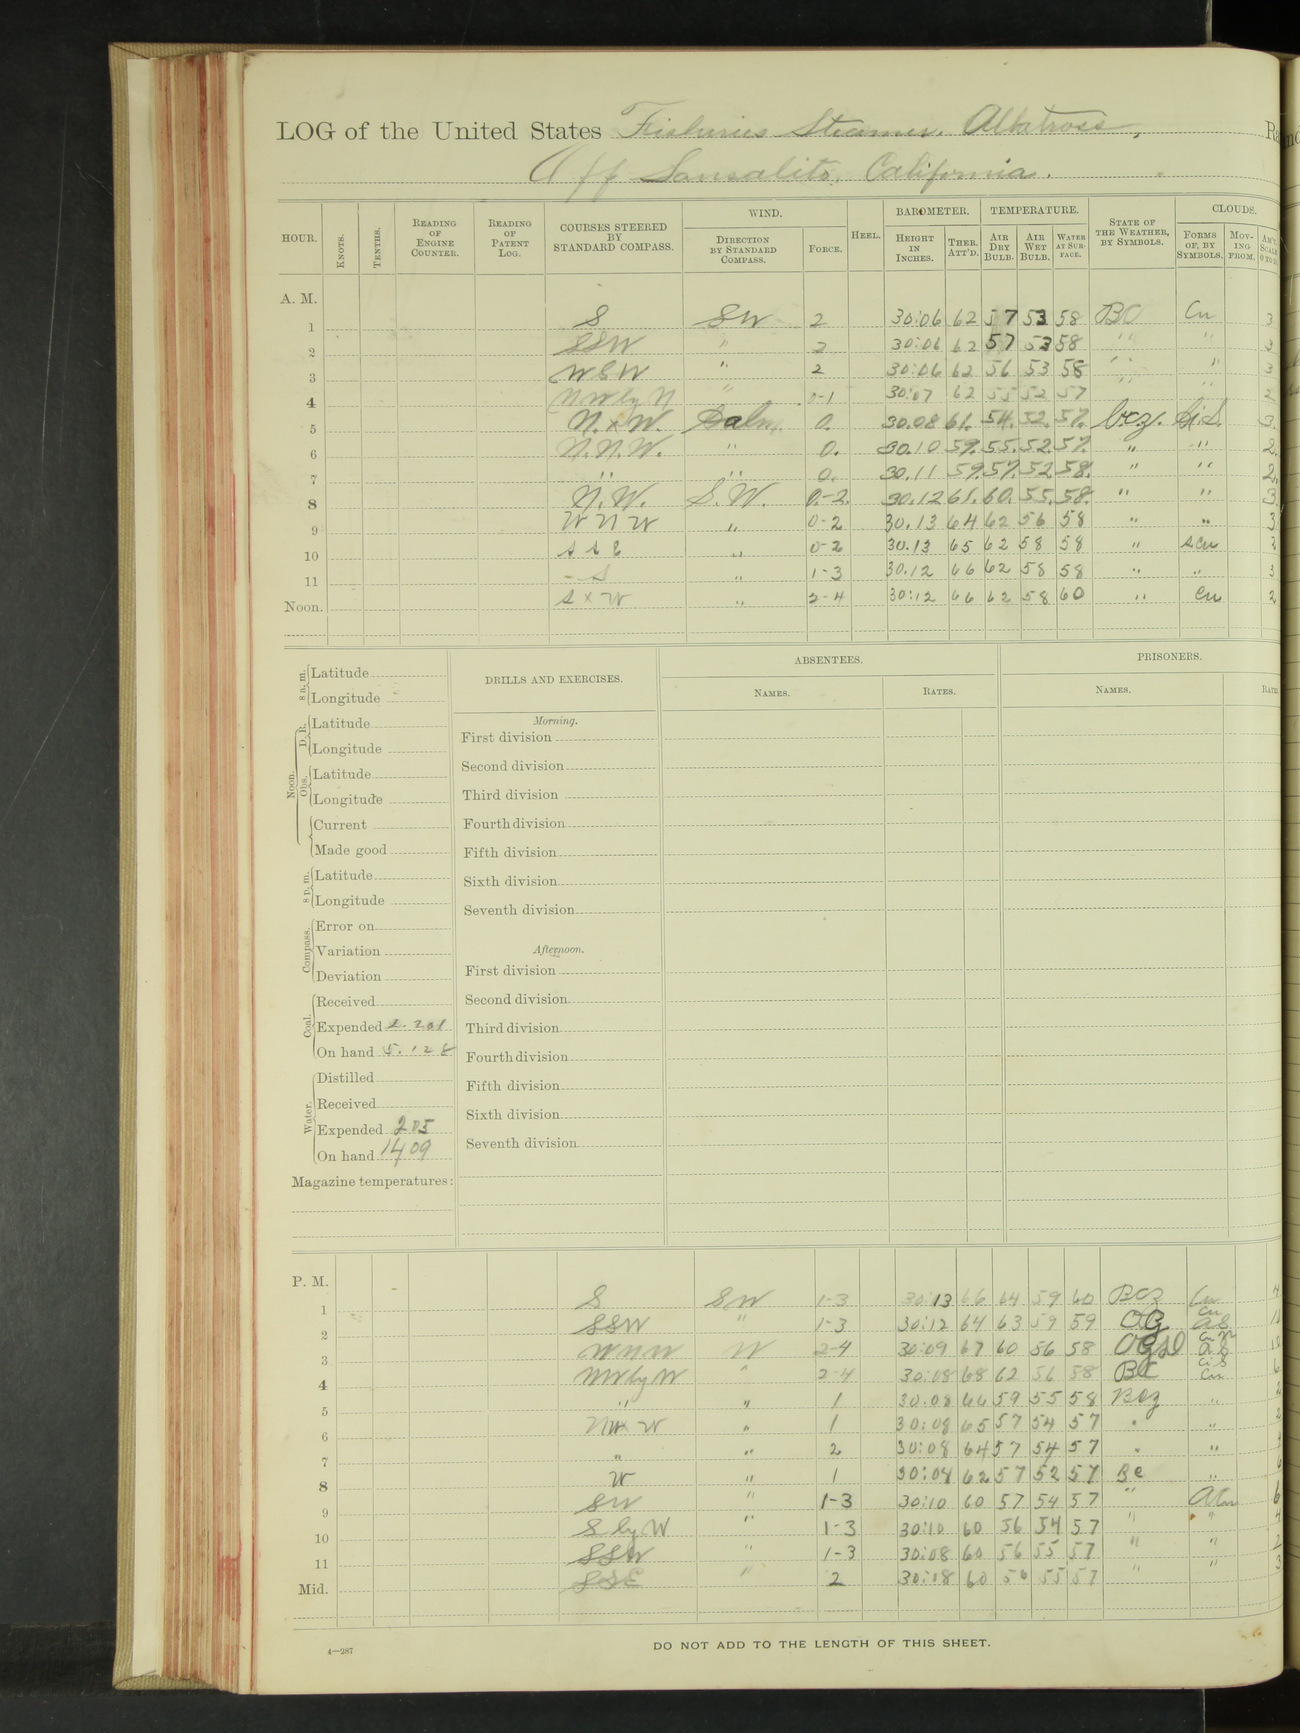 LOG of the United States Fisheries Steamer Albatross,
Off Sausalito, California.
HOUR. KNOTS. TENTHS. READING OF ENGINE COUNTER. READING OF PATENT LOG. COURSES STEERED BY STANDARD COMPASS. WIND. DIRECTION BY STANDARD COMPASS. FORCE. HEEL. BAROMETER. HEIGHT IN INCHES. THER. ATT'D. TEMPERATURE. AIR DRY BULB. AIR WET BULB. WATER AT SURFACE. STATE OF THE WEATHER, BY SYMBOLS. CLOUDS. FORMS OF, BY SYMBOLS. MOVING FROM.
A. M.
1 S SW 2 30:06 62 57 53 58 BC Cu 3
2 SSW " 2 30:06 62 57 53 58 " " 3
3 WSW " 2 30:06 62 56 53 58 " " 3
4 NW by N " 0-1 30:07 62 55 52 57 " " 2
5 N.xW. Calm. 0. 30.08 61. 54. 52. 57. b.c.z. Ci.S. 3.
6 N.N.W. " 0. 30.10 59. 55. 52. 57. " " 2.
7 " " 0. 30.11 59. 57. 52. 58. " " 2.
8 N.W. S.W. 0-2. 30.12 61. 60. 55. 58. " " 3.
9 WNW " 0-2 30.13 64 62 56 58 " " 3
10 SSE " 0-2 30.13 65 62 58 58 " S cu 3
11 S " 1-3 30.12 66 62 58 58 " " 3
Noon. S x W " 2-4 30:12 66 62 58 60 " Cu 2
8 a. m. Latitude
Longitude
Noon. D. R. Latitude
Longitude
Obs. Latitude
Longitude
Current
Made good
8 p. m. Latitude
Longitude
Compass. Error on
Variation
Deviation
Coal. Received
Expended 2.201
On hand 5.128
Water. Distilled
Received
Expended 205
On hand 1409
Magazine temperatures:
DRILLS AND EXERCISES.
Morning.
First division
Second division
Third division
Fourth division
Fifth division
Sixth division
Seventh division
Afternoon.
First division
Second division
Third division
Fourth division
Fifth division
Sixth division
Seventh division
ABSENTEES.
NAMES. RATES.
PRISONERS.
NAMES.
P. M.
1 S SW 1-3 30:13 66 64 59 60 BCZ Cu 4
2 SSW " 1-3 30:12 64 63 59 59 OG Cu
3 WNW W 2-4 30:09 67 60 56 58
4 NW by W " 2-4 30:08 68 62 56 58 BC Ci S Cu 6
5 " " 1 30.08 66 59 55 58 Bcz "
6 NW x W " 1 30:08 65 57 54 57 " "
7 " " 2 30:08 64 57 54 57 " "
8 W " 1 30:08 62 57 52 57 Bc " 6
9 SW " 1-3 30:10 60 57 54 57 " ACu 6
10 S by W " 1-3 30:10 60 56 54 57 " " 4
11 SSW " 1-3 30:08 60 56 55 57 " " 2
Mid. SSE " 2 30:08 60 56 55 57 " " 3
4—287
DO NOT ADD TO THE LENGTH OF THIS SHEET.